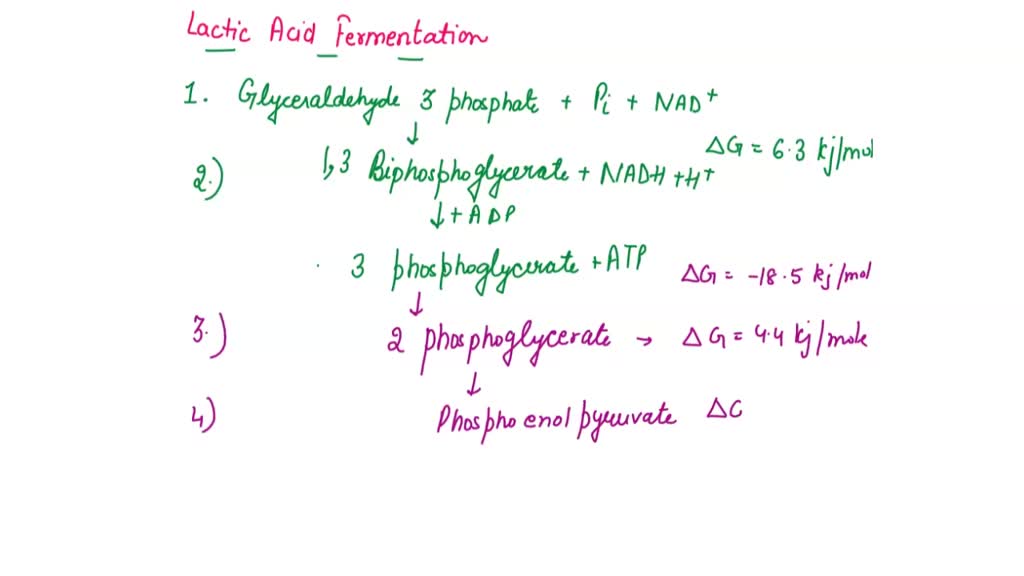 Lactic Acid Fermentation
1. Glyceraldehyde 3 phosphate + Pi + NAD+
↓
ΔG = 6.3 kj/mol
2.) 1,3 Biphosphoglycerate + NADH + H+
↓ + ADP
3 phosphoglycerate + ATP ΔG = -18.5 kj/mol
↓
3.) 2 phosphoglycerate → ΔG = 4.4 kj/mole
↓
4) Phospho enol pyruvate ΔG